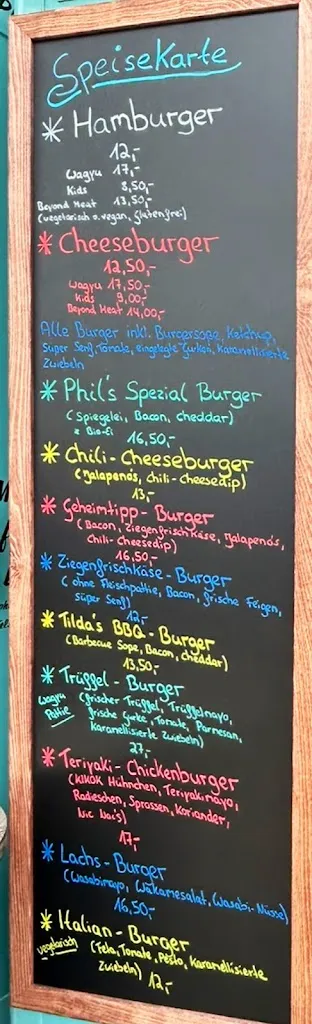 Speisekarte
* Hamburger
12,-
Wagyu 17,-
Kids 8,50,-
Beyond Meat 13,50,-
(vegetarisch o. vegan, glutenfrei)
* Cheeseburger
12,50,-
Wagyu 17,50,-
Kids 9,00,-
Beyond Meat 14,00,-
Alle Burger inkl. Burgersoße, Ketchup,
Süper Senf, Tomate, eingelegte Gurken, Karamellisierte
Zwiebeln
* Phil's Spezial Burger
(Spiegelei, Bacon, cheddar)
2 Bio-Ei
16,50,-
* Chili-Cheeseburger
(Jalapenós, Chili-Cheesedip)
13,-
* Geheimtipp-Burger
(Bacon, Ziegenfrischkäse, Jalapenós,
Chili-Cheesedip)
16,50,-
* Ziegenfrischkäse-Burger
(ohne Fleischpattie, Bacon, frische Feigen,
süper Senf)
12,-
* Tilda's BBQ-Burger
(Barbecue Soße, Bacon, cheddar)
13,50,-
* Trüffel-Burger
Wagyu Pattie
(frischer Trüffel, Trüffelmayo,
frische Gurke, Tomate, Parmesan,
Karamellisierte Zwiebeln)
27,-
* Teriyaki-Chickenburger
(KIKOK Hühnchen, Teriyakimayo,
Radieschen, Sprossen, Koriander,
Nic Nac's)
17,-
* Lachs-Burger
(Wasabimayo, Wakamesalat, Wasabi-Nüsse)
16,50,-
* Italian-Burger
vegetarisch
(Feta, Tomate, Pesto, Karamellisierte
Zwiebeln) 12,-